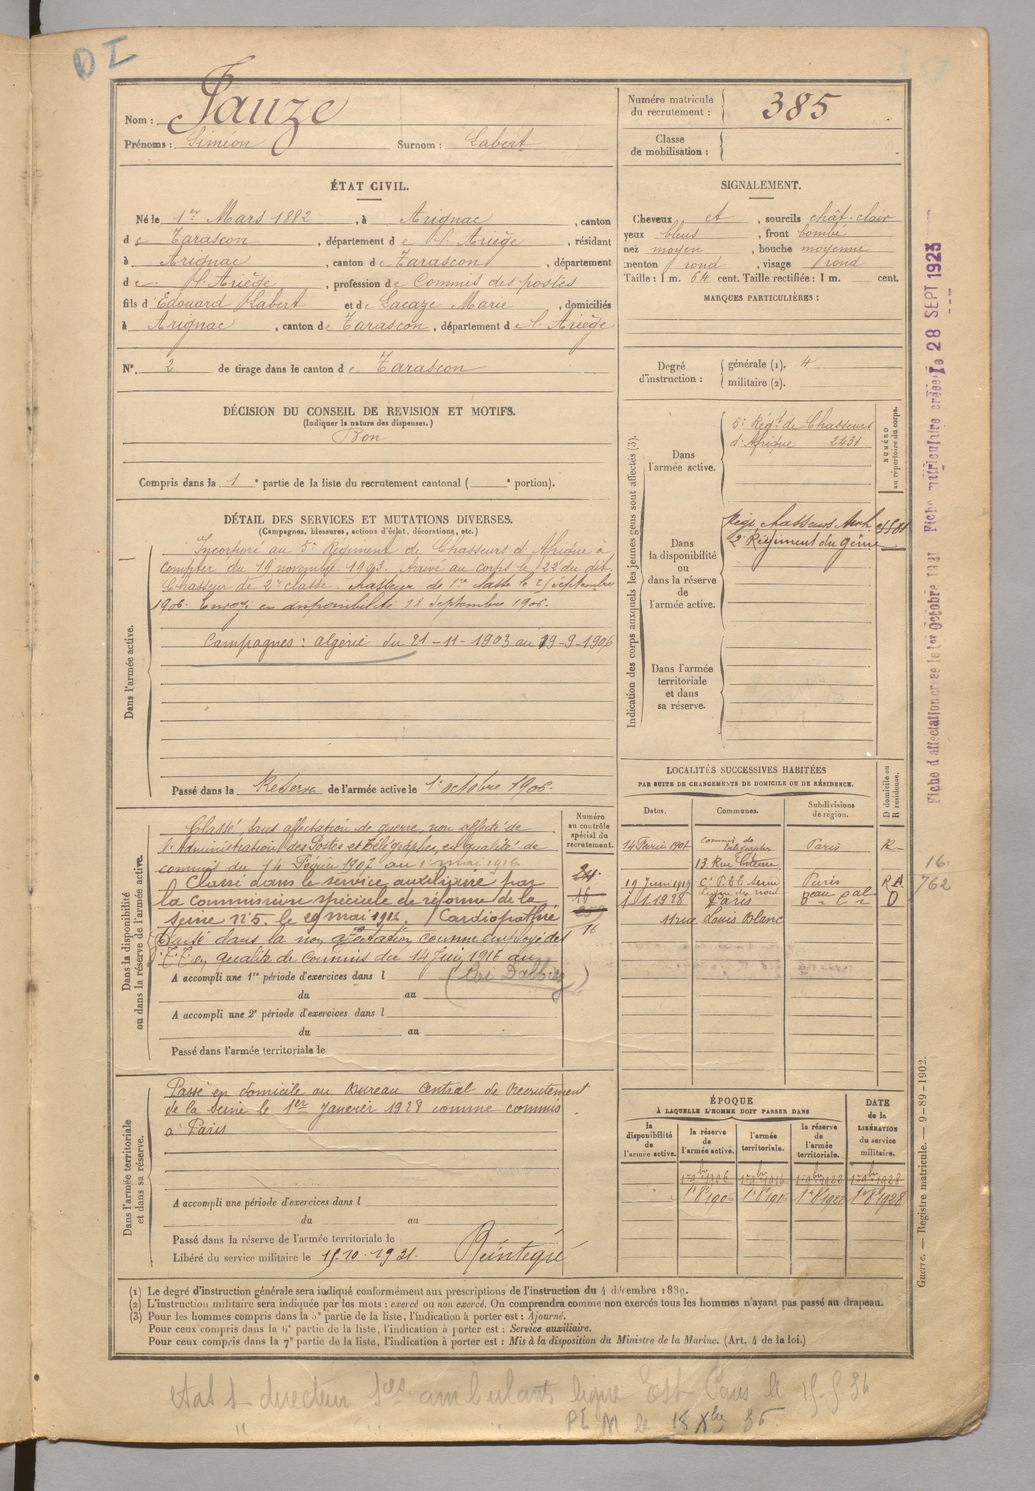 D I
Nom : Fauze
Prénoms : Siméon Surnom : Labert
Numéro matricule du recrutement : 385
Classe de mobilisation :
ÉTAT CIVIL.
Né le 1er Mars 1882, à Arignac, canton
de Tarascon, département de l'Ariège, résidant
à Arignac, canton de Tarascon, département
de l'Ariège, profession de Commis des postes
fils d'Edouard Labert et de Lacaze Marie, domiciliés
à Arignac, canton de Tarascon, département de l'Ariège
N° 2 de tirage dans le canton de Tarascon
SIGNALEMENT.
Cheveux et, sourcils chât. clair
yeux bleus, front bombé
nez moyen, bouche moyenne
menton rond, visage rond
Taille : 1 m. 64 cent. Taille rectifiée : 1 m. cent.
MARQUES PARTICULIÈRES :
Degré d'instruction : générale (1). 4
militaire (2).
DÉCISION DU CONSEIL DE REVISION ET MOTIFS.
(Indiquer la nature des dispenses.)
Bon
Compris dans la 1e partie de la liste du recrutement cantonal ( e portion).
DÉTAIL DES SERVICES ET MUTATIONS DIVERSES.
(Campagnes, blessures, actions d'éclat, décorations, etc.)
Dans l'armée active.
Incorporé au 5e Régiment de Chasseurs d'Afrique à
compter du 19 novembre 1903. Arrivé au corps le 22 du dit.
Chasseur de 2e classe. Chasseur de 1re classe le 21 septembre
1905. Envoyé en disponibilité 18 septembre 1906.
Campagnes : Algérie du 21-11-1903 au 19-9-1906
Passé dans la Réserve de l'armée active le 1er octobre 1906.
Indication des corps auxquels les jeunes gens sont affectés (3).
Dans l'armée active.
5e Régt de Chasseurs
d'Afrique 2431
NUMÉRO au répertoire du corps.
Dans la disponibilité ou dans la réserve de l'armée active.
2e Régiment du génie
Dans l'armée territoriale et dans sa réserve.
Fiche d'affectation créée le 1er Octobre 1921 Fiche matriculaire créée le 28 SEPT 1923
Dans la disponibilité ou dans la réserve de l'armée active.
Numéro au contrôle spécial du recrutement.
Classé sans affectation de guerre, non affecté de
l'Administration des Postes et Télégraphes, en qualité de
commis du 14 Février 1907 au 1er mai 1916
Classé dans le service auxiliaire par
la Commission spéciale de réforme de la
Seine n°5. le 29 mai 1916. Cardiopathie
Classé dans la non affectation comme employé des
P.T.T. en qualité de Commis du 14 Juin 1916 au
(Loi Dalbiez)
A accompli une 1re période d'exercices dans l
du au
A accompli une 2e période d'exercices dans l
du au
Passé dans l'armée territoriale le
LOCALITÉS SUCCESSIVES HABITÉES
PAR SUITE DE CHANGEMENTS DE DOMICILE OU DE RÉSIDENCE.
Dates. Communes. Subdivisions de région. D domicile ou R résidence.
14 Février 1907 commis de télégraphes Paris R
13 Rue
19 Juin 1919 Paris R
1.1.1928 Paris D
rue Louis Blanc
16.
762
Dans l'armée territoriale et dans sa réserve.
Passé en domicile au Bureau Central de Recrutement
de la Seine le 1er Janvier 1928 comme commis
à Paris
A accompli une période d'exercices dans l
du au
Passé dans la réserve de l'armée territoriale le
Libéré du service militaire le 15.10.1931. Réintégré
ÉPOQUE
À LAQUELLE L'HOMME DOIT PASSER DANS
DATE de la LIBÉRATION du service militaire.
la disponibilité de l'armée active. la réserve de l'armée active. l'armée territoriale. la réserve de l'armée territoriale.
1er 9bre 1906 1er 9bre 1916 1er 9bre 1922 1er 9bre 1928
1er 8bre 1906 1er 8bre 1916 1er 8bre 1922 1er 8bre 1928
Guerre. — Registre matricule. — 9-89-1902.
(1) Le degré d'instruction générale sera indiqué conformément aux prescriptions de l'instruction du 4 décembre 1889.
(2) L'instruction militaire sera indiquée par les mots : exercé ou non exercé. On comprendra comme non exercés tous les hommes n'ayant pas passé au drapeau.
(3) Pour les hommes compris dans la 5e partie de la liste, l'indication à porter est : Ajourné.
Pour ceux compris dans la 6e partie de la liste, l'indication à porter est : Service auxiliaire.
Pour ceux compris dans la 7e partie de la liste, l'indication à porter est : Mis à la disposition du Ministre de la Marine. (Art. 4 de la loi.)
directeur sces ambulants ligne Est Paris le 15-5-36
le 18 Xbre 36.